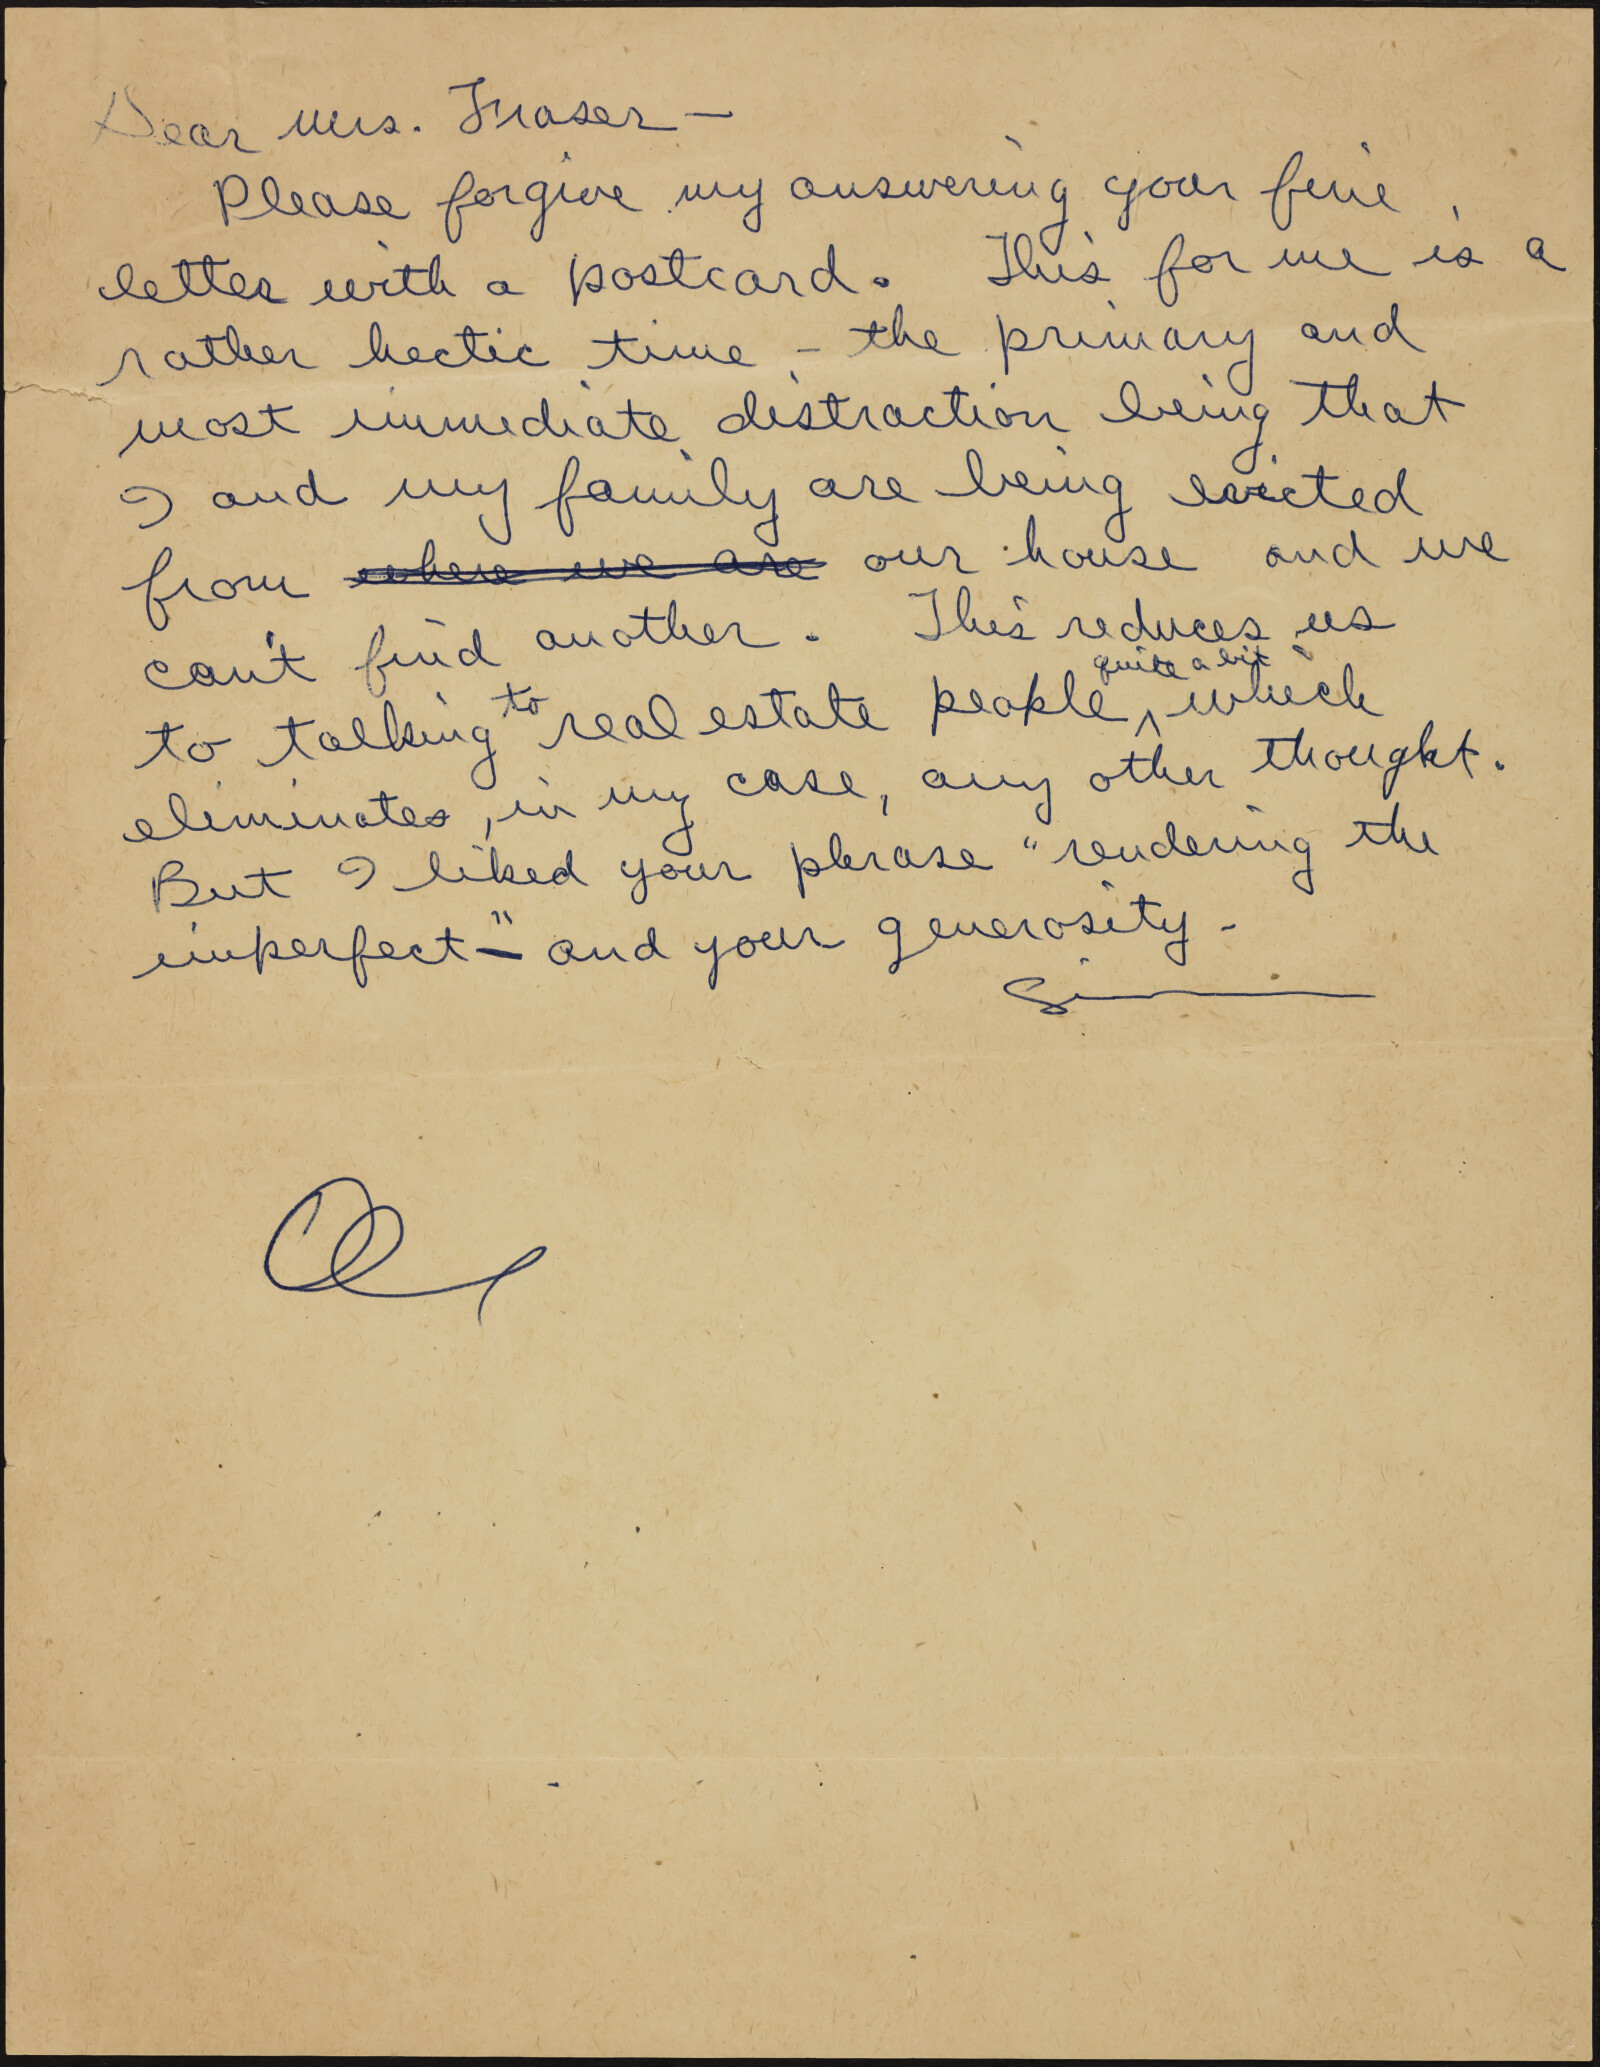 Dear Mrs. Fraser —
Please forgive my answering your fine
letter with a postcard. This for me is a
rather hectic time – the primary and
most immediate distraction being that
I and my family are being evicted
from where we are our house and we
can't find another. This reduces us
to talking to real estate people quite a bit, which
eliminates, in my case, any other thought.
But I liked your phrase "rendering the
imperfect —" and your generosity –